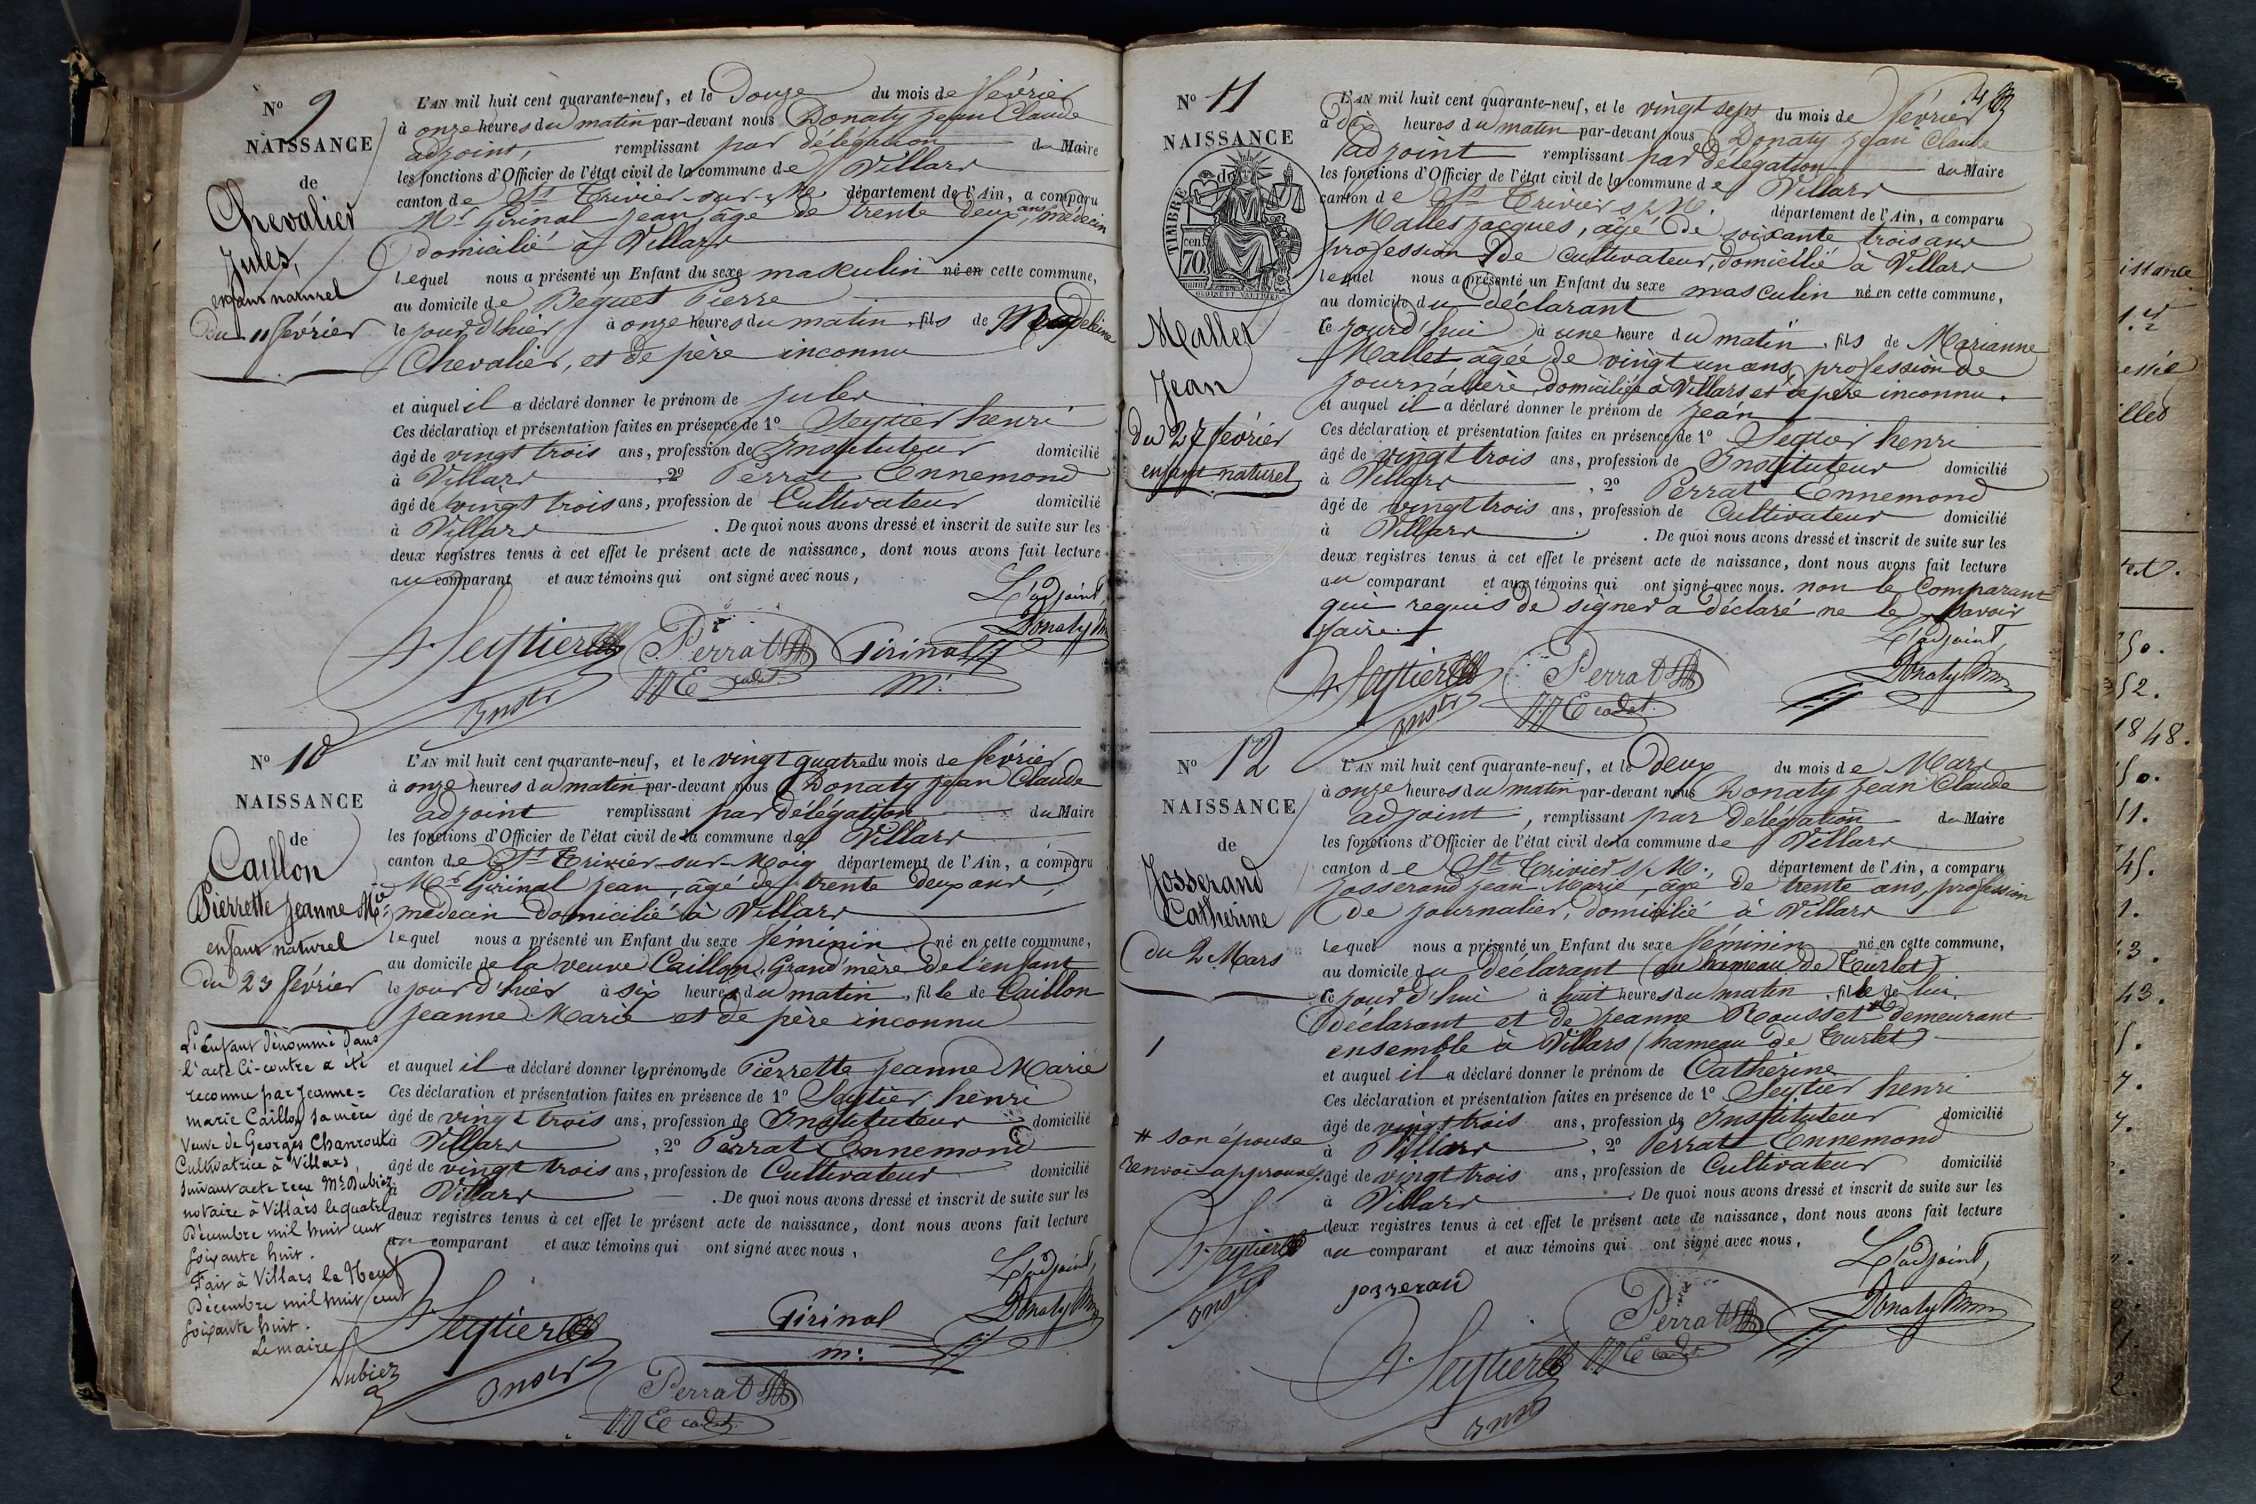 N° 9
NAISSANCE
de
Chevalier
Jules,
enfant naturel
du 11 février
L'AN mil huit cent quarante-neuf, et le Douze du mois de février
à onze heures du matin par-devant nous Donaty Jean Claude
adjoint, remplissant par délégation du Maire
les fonctions d'Officier de l'état civil de la commune de Villars
canton de St Trivier-sur-M. département de l'Ain, a comparu
Mr Girinal Jean, âgé de trente deux ans, médecin
domicilié à Villars
lequel nous a présenté un Enfant du sexe masculin né en cette commune,
au domicile de Beguet Pierre
le jour d'hier à onze heures du matin, fils de Magdeleine
Chevalier, et de père inconnu
et auquel il a déclaré donner le prénom de Jules
Ces déclaration et présentation faites en présence de 1° Seytier henri
âgé de vingt trois ans, profession de Instituteur domicilié
à Villars , 2° Perrat Ennemond
âgé de vingt trois ans, profession de Cultivateur domicilié
à Villars . De quoi nous avons dressé et inscrit de suite sur les
deux registres tenus à cet effet le présent acte de naissance, dont nous avons fait lecture
au comparant et aux témoins qui ont signé avec nous,
L'adjoint,
H. Seytier Perrat Girinal Donaty
Instr E cadet m.
N° 10
NAISSANCE
de
Caillon
Pierrette Jeanne Mie
enfant naturel
du 23 février
L'AN mil huit cent quarante-neuf, et le vingt quatre du mois de février
à onze heures du matin par-devant nous Donaty Jean Claude
adjoint remplissant par délégation du Maire
les fonctions d'Officier de l'état civil de la commune de Villars
canton de St Trivier-sur-Moig département de l'Ain, a comparu
Mr Girinal Jean, âgé de trente deux ans,
médecin domicilié à Villars
lequel nous a présenté un Enfant du sexe féminin né en cette commune,
au domicile de la veuve Caillon, Grand'mère de l'enfant
le jour d'hier à six heures du matin, fille de Caillon
Jeanne Marie et de père inconnu
et auquel il a déclaré donner les prénoms de Pierrette Jeanne Marie
Ces déclaration et présentation faites en présence de 1° Seytier henri
âgé de vingt trois ans, profession de Instituteur domicilié
à Villars , 2° Perrat Ennemond
âgé de vingt trois ans, profession de Cultivateur domicilié
à Villars . De quoi nous avons dressé et inscrit de suite sur les
deux registres tenus à cet effet le présent acte de naissance, dont nous avons fait lecture
au comparant et aux témoins qui ont signé avec nous,
L'adjoint,
H. Seytier Girinal Donaty
Instr m.
Perrat
E cadet
L'enfant dénommé dans
l'acte ci-contre a été
reconnu par Jeanne=
marie Caillon sa mère
Veuve de Georges Chanrout
Cultivatrice à Villars,
suivant acte reçu Mr Dubiez
notaire à Villars le quatre
Décembre mil huit cent
soixante huit.
Fait à Villars le Neuf
Décembre mil huit cent
soixante huit.
Le maire
Dubiez
N° 11
NAISSANCE
de
TIMBRE
cen
70
Mallet
Jean
du 27 février
enfant naturel
L'AN mil huit cent quarante-neuf, et le vingt sept du mois de février
à dix heures du matin par-devant nous Donaty Jean Claude
adjoint remplissant par délégation du Maire
les fonctions d'Officier de l'état civil de la commune de Villars
canton de St Trivier s/ M. département de l'Ain, a comparu
Mallet Jacques, âgé de soixante trois ans
profession de Cultivateur, domicilié à Villars
lequel nous a présenté un Enfant du sexe masculin né en cette commune,
au domicile du déclarant
ce jourd'hui à une heure du matin, fils de Marianne
Mallet âgée de vingt un ans, profession de
journalière, domiciliée à Villars et de père inconnu.
et auquel il a déclaré donner le prénom de Jean
Ces déclaration et présentation faites en présence de 1° Seytier henri
âgé de vingt trois ans, profession de Instituteur domicilié
à Villars , 2° Perrat Ennemond
âgé de vingt trois ans, profession de Cultivateur domicilié
à Villars . De quoi nous avons dressé et inscrit de suite sur les
deux registres tenus à cet effet le présent acte de naissance, dont nous avons fait lecture
au comparant et aux témoins qui ont signé avec nous. non le Comparant
qui requis de signer a déclaré ne le savoir
faire.
L'adjoint,
H. Seytier Perrat Donaty
Instr E cadet
N° 12
NAISSANCE
de
Josserand
Catherine
du 2 Mars
L'AN mil huit cent quarante-neuf, et le deux du mois de Mars
à onze heures du matin par-devant nous Donaty Jean Claude
adjoint, remplissant par délégation du Maire
les fonctions d'Officier de l'état civil de la commune de Villars
canton de St Trivier s/ M., département de l'Ain, a comparu
Josserand Jean Marie, âgé de trente ans, profession
de journalier, domicilié à Villars
Lequel nous a présenté un Enfant du sexe féminin né en cette commune,
au domicile du déclarant (au hameau de Turlet)
ce jourd'hui à huit heures du matin, fille de lui,
déclarant et de Jeanne Rousset # demeurant
ensemble à Villars (hameau de Turlet)
et auquel il a déclaré donner le prénom de Catherine
Ces déclaration et présentation faites en présence de 1° Seytier henri
âgé de vingt trois ans, profession de Instituteur domicilié
à Villars , 2° Perrat Ennemond
âgé de vingt trois ans, profession de Cultivateur domicilié
à Villars . De quoi nous avons dressé et inscrit de suite sur les
deux registres tenus à cet effet le présent acte de naissance, dont nous avons fait lecture
au comparant et aux témoins qui ont signé avec nous,
# son épouse
renvoi approuvé.
H. Seytier
Instr
L'adjoint,
josseran Perrat Donaty
H. Seytier E cadet
Instr